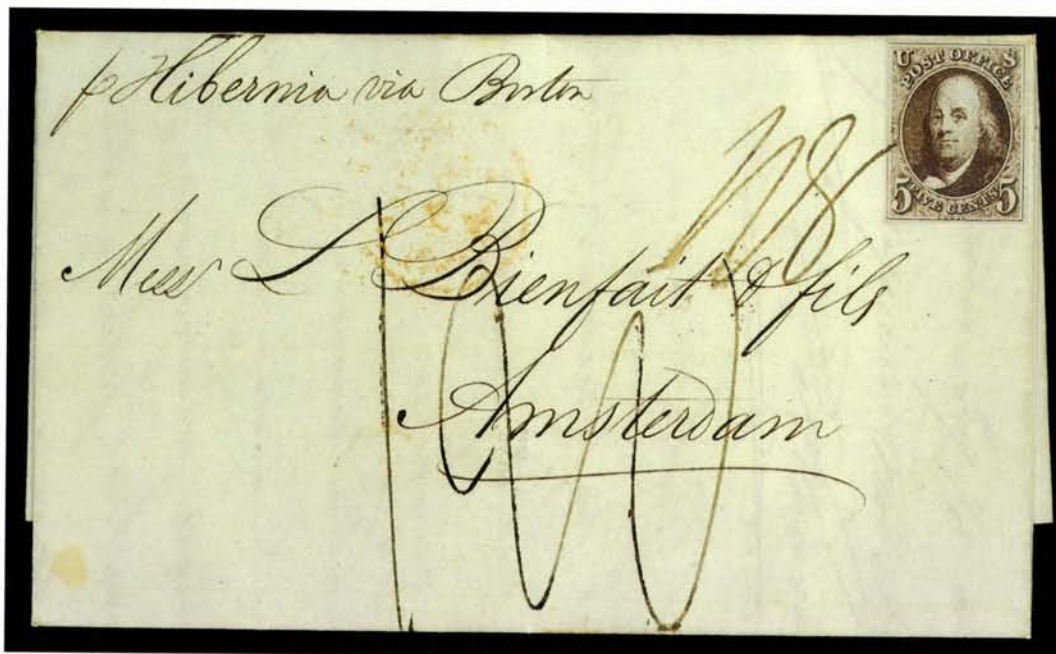 p Hibernia via Boston
U S
POST OFFICE
5 FIVE CENTS 5
Mess L Bienfait & fils
Amsterdam